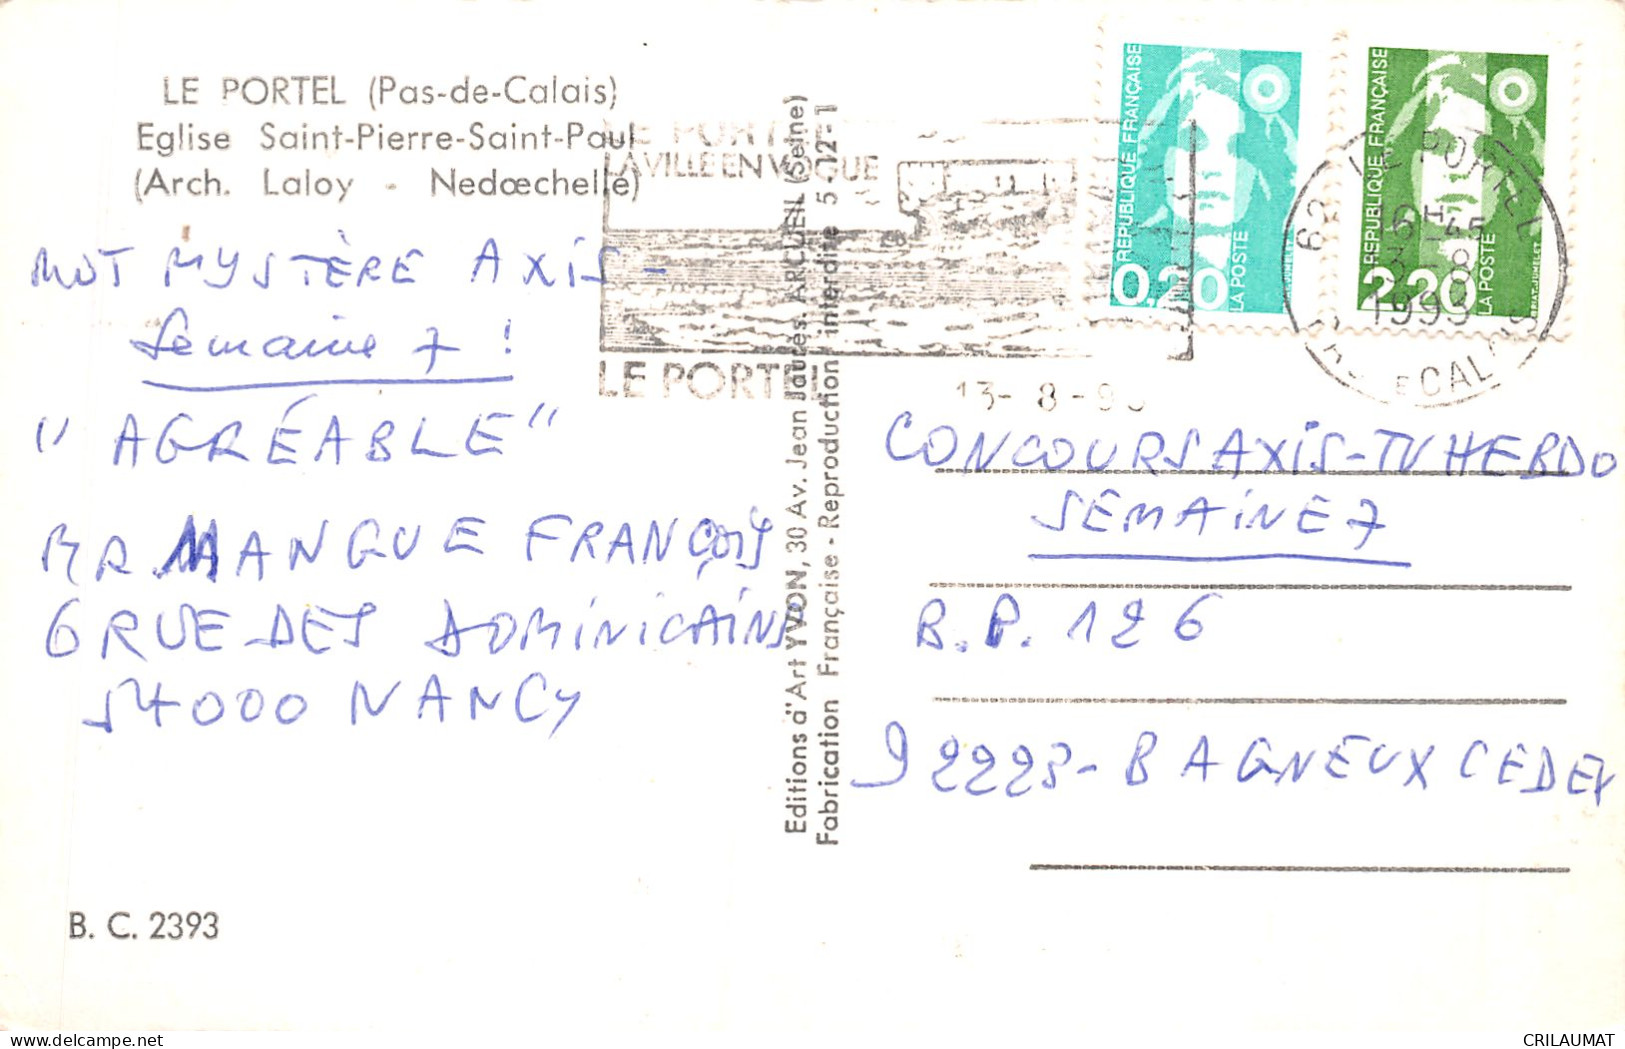 LE PORTEL (Pas-de-Calais)
Eglise Saint-Pierre-Saint-Paul
(Arch. Laloy - Nedœchelle)
MOT MYSTÈRE AXIS -
Semaine 7 !
" AGRÉABLE "
MR MANGUE FRANÇOIS
6 RUE DES DOMINICAINS
54000 NANCY
B. C. 2393
Editions d'Art YVON, 30 Av. Jean Jaurès. ARCUEIL (Seine)
Fabrication Française - Reproduction interdite 5-12-1
LE PORTEL
LA VILLE EN VOGUE
LE PORTEL
13-8-93
RÉPUBLIQUE FRANÇAISE
0,20
LA POSTE
RÉPUBLIQUE FRANÇAISE
2,20
LA POSTE
62 LE PORTEL
16H45
13-8
1993
PAS DE CALAIS
CONCOURS AXIS-TV HEBDO
SEMAINE 7
B.P. 126
92223 - BAGNEUX CEDEX
CRILAUMAT